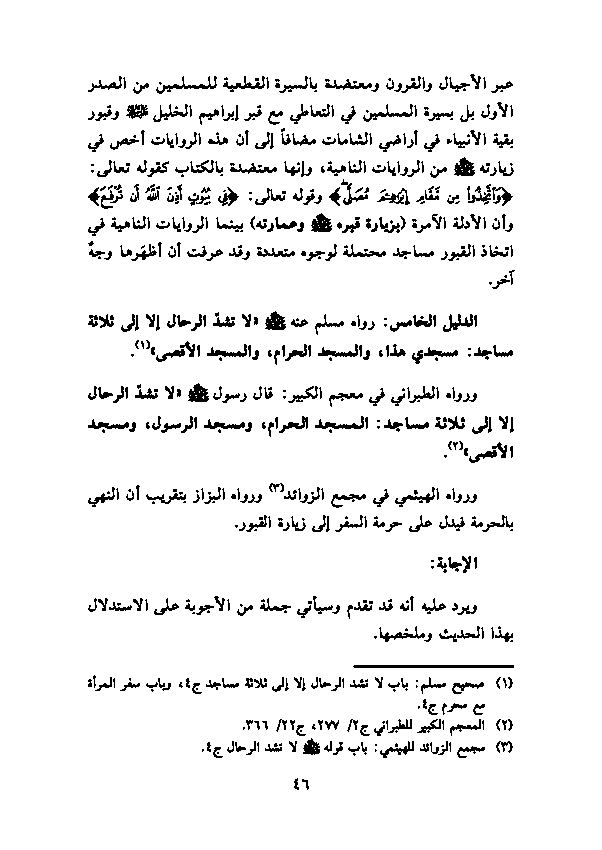 عبر الأجيال والقرون ومعتضدة بالسيرة القطعية للمسلمين من الصدر
الأول بل بسيرة المسلمين في التعاطي مع قبر إبراهيم الخليل ﷺ وقبور
بقية الأنبياء في أراضي الشامات مضافاً إلى أن هذه الروايات أخص في
زيارته ﷺ من الروايات الناهية، وإنها معتضدة بالكتاب كقوله تعالى:
﴿وَٱتَّخِذُوا۟ مِن مَّقَامِ إِبْرَٰهِـۧمَ مُصَلًّى﴾ وقوله تعالى: ﴿فِى بُيُوتٍ أَذِنَ ٱللَّهُ أَن تُرْفَعَ﴾
وأن الأدلة الآمرة (بزيارة قبره ﷺ وعمارته) بينما الروايات الناهية في
اتخاذ القبور مساجد محتملة لوجوه متعددة وقد عرفت أن أظهَرها وجهٌ
آخر.
الدليل الخامس: رواه مسلم عنه ﷺ «لا تشدّ الرحال إلا إلى ثلاثة
مساجد: مسجدي هذا، والمسجد الحرام، والمسجد الأقصى»(١).
ورواه الطبراني في معجم الكبير: قال رسول ﷺ «لا تشدّ الرحال
إلا إلى ثلاثة مساجد: المسجد الحرام، ومسجد الرسول، ومسجد
الأقصى»(٢).
ورواه الهيثمي في مجمع الزوائد(٣) ورواه البزاز بتقريب أن النهي
بالحرمة فيدل على حرمة السفر إلى زيارة القبور.
الإجابة:
ويرد عليه أنه قد تقدم وسيأتي جملة من الأجوبة على الاستدلال
بهذا الحديث وملخصها.
(١) صحيح مسلم: باب لا تشد الرحال إلا إلى ثلاثة مساجد ج٤، وباب سفر المرأة
مع محرم ج٤.
(٢) المعجم الكبير للطبراني ج٢/ ٢٧٧، ج٢٢/ ٣٦٦.
(٣) مجمع الزوائد للهيثمي: باب قوله ﷺ لا تشد الرحال ج٤.
٤٦